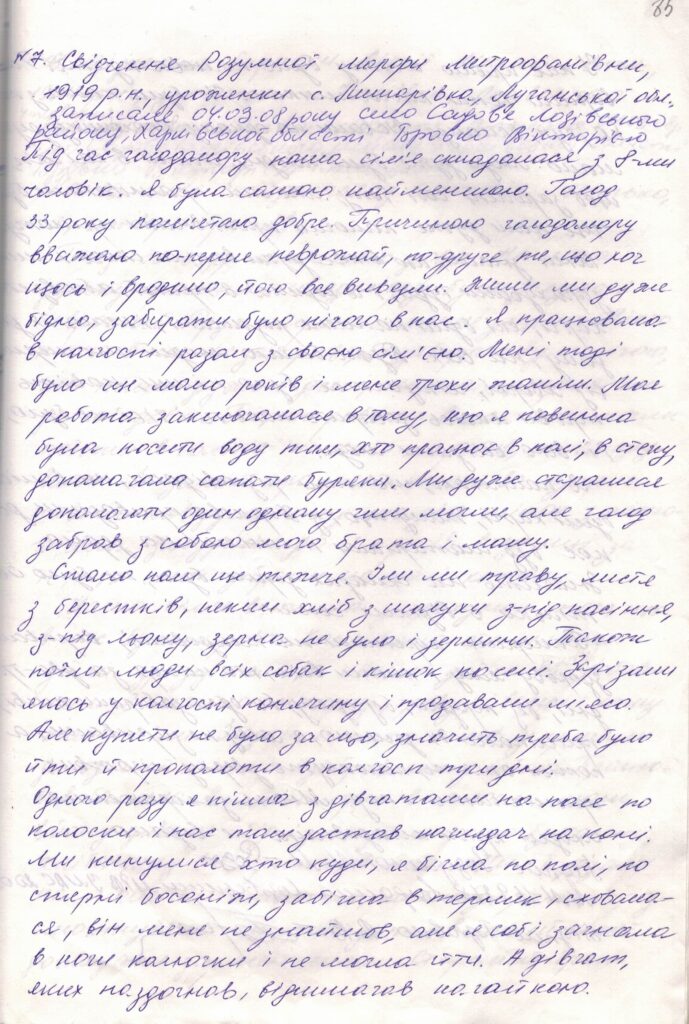 85
№7. Свідчення Розумної Марфи Митрофанівни,
1919 р.н., уроженки с. Лиманівка, Луганської обл.
записане 04.03.08 року село Садове Лозівського
району, Харківської області Вікторією
Під час голодомору наша сім'я складалася з 8-ми
чоловік. Я була самою найменшою. Голод
33 року пам'ятаю добре. Причиною голодомору
вважаю по-перше неврожай, по-друге те, що хоч
щось і вродило, його все вивезли. Жили ми дуже
бідно, забирати було нічого в нас. Я працювала
в колгоспі разом з своєю сім'єю. Мені тоді
було ще мало років і мене трохи жаліли. Моя
робота заключалася в тому, що я повинна
була носити воду тим, хто працює в полі, в степу,
допомагала сапати буряки. Ми дуже старалися
допомагати один одному чим могли, але голод
забрав з собою мого брата і маму.
Стало нам ще тяжче. Їли ми траву, листя
з берестків, пекли хліб з шалухи з-під насіння,
з-під льону, зерна не було і зернини. Також
поїли люди всіх собак і кішок по селі. Зарізали
якось у колгоспі конячину і продавали м'ясо.
Але купити не було за що, значить треба було
йти й прополоти в колгосп три дні.
Одного разу я пішла з дівчатами на поле по
колоски і нас там застав наглядач на коні.
Ми кинулися хто куди, я бігла по полі, по
стерні босоніж, забігла в терник, сховала-
ся, він мене не знайшов, але я собі загнала
в ноги колючки і не могла йти. А дівчат,
яких наздогнав, відшмагав нагайкою.